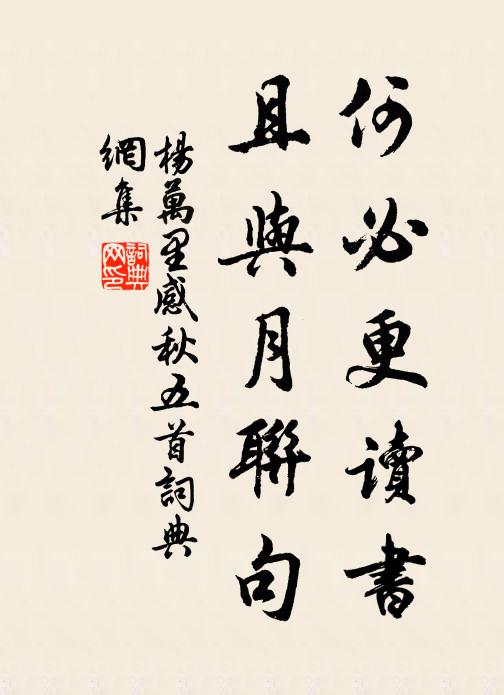 何必更讀書
且與月聯句
楊萬里感秋五首詞典
網集
詞典
网印